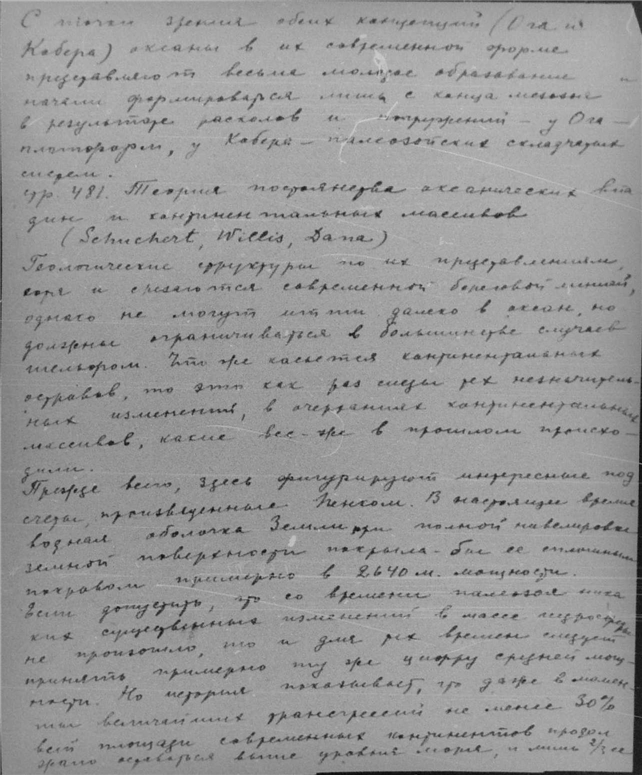 С точки зрения обеих концепций (Ога и
Кобера) океаны в их современной форме
представляют весьма молодое образование и
начали формироваться лишь с конца мезозоя
в результате расколов и погружений – у Ога –
платформ, у Кобера – палеозойских складчатых
систем.
стр. 481. Теория постоянства океанических впа
дин и континентальных массивов
(Schuchert, Willis, Dana)
Геологические структуры по их представлениям,
хотя и срезаются современной береговой линией,
однако не могут итти далеко в океан, но
должны ограничиваться в большинстве случаев
шельфом. Что же касается континентальных
островов, то это как раз следы тех незначитель-
ных изменений, в очертаниях континентальных
массивов, какие все-же в прошлом происхо-
дили.
Прежде всего, здесь фигурируют интересные под
счеты, произведенные Пенком. В настоящее время
водная оболочка Земли при полной нивелировке
земной поверхности покрыла-бы ее сплошным
покровом примерно в 2640 м. мощности.
Если допустить, что со времени палеозоя ника
ких существенных изменений в массе гидросферы
не произошло, то и для тех времен следует
принять примерно ту же цифру средней мощ-
ности. Но история показывает, что даже в момен
ты величайших трансгрессий не менее 30%
всей площади современных континентов продол
жало оставаться выше уровня моря, и лишь 2/3 ее